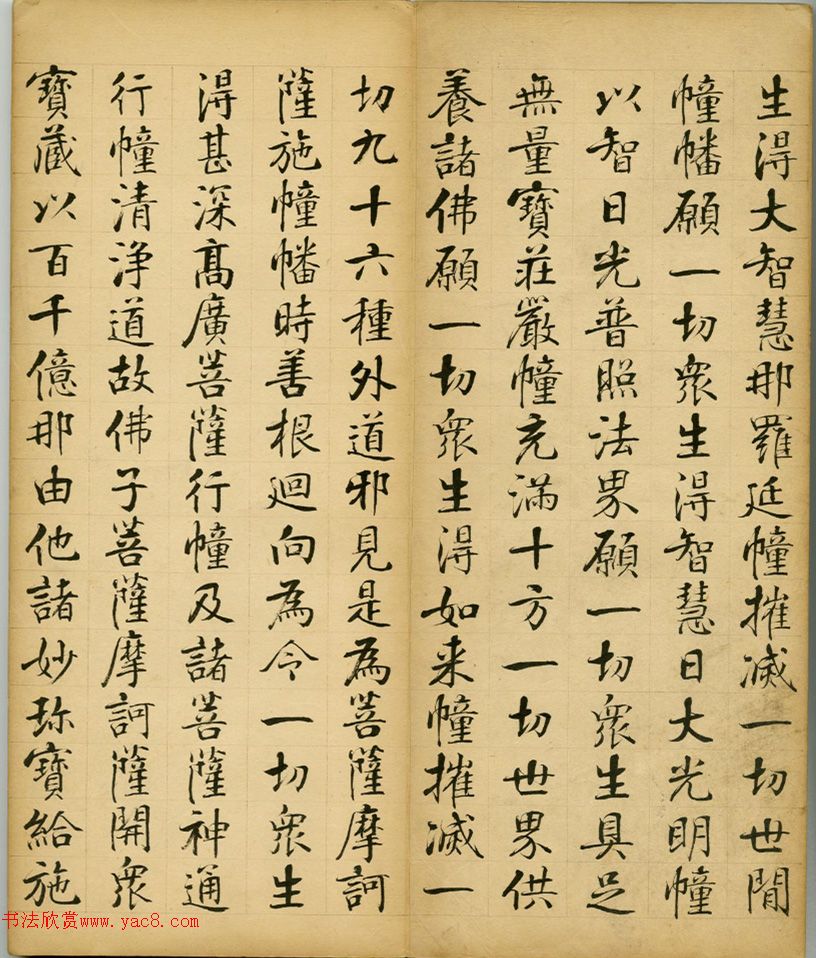 生得大智慧那羅延幢摧滅一切世間
幢幡願一切衆生得智慧日大光明幢
以智日光普照法界願一切衆生具足
無量寶莊嚴幢充滿十方一切世界供
養諸佛願一切衆生得如来幢摧滅一
切九十六種外道邪見是為菩薩摩訶
薩施幢幡時善根迴向為令一切衆生
得甚深高廣菩薩行幢及諸菩薩神通
行幢清淨道故佛子菩薩摩訶薩開衆
寶藏以百千億那由他諸妙珎寶給施
书法欣赏www.yac8.com